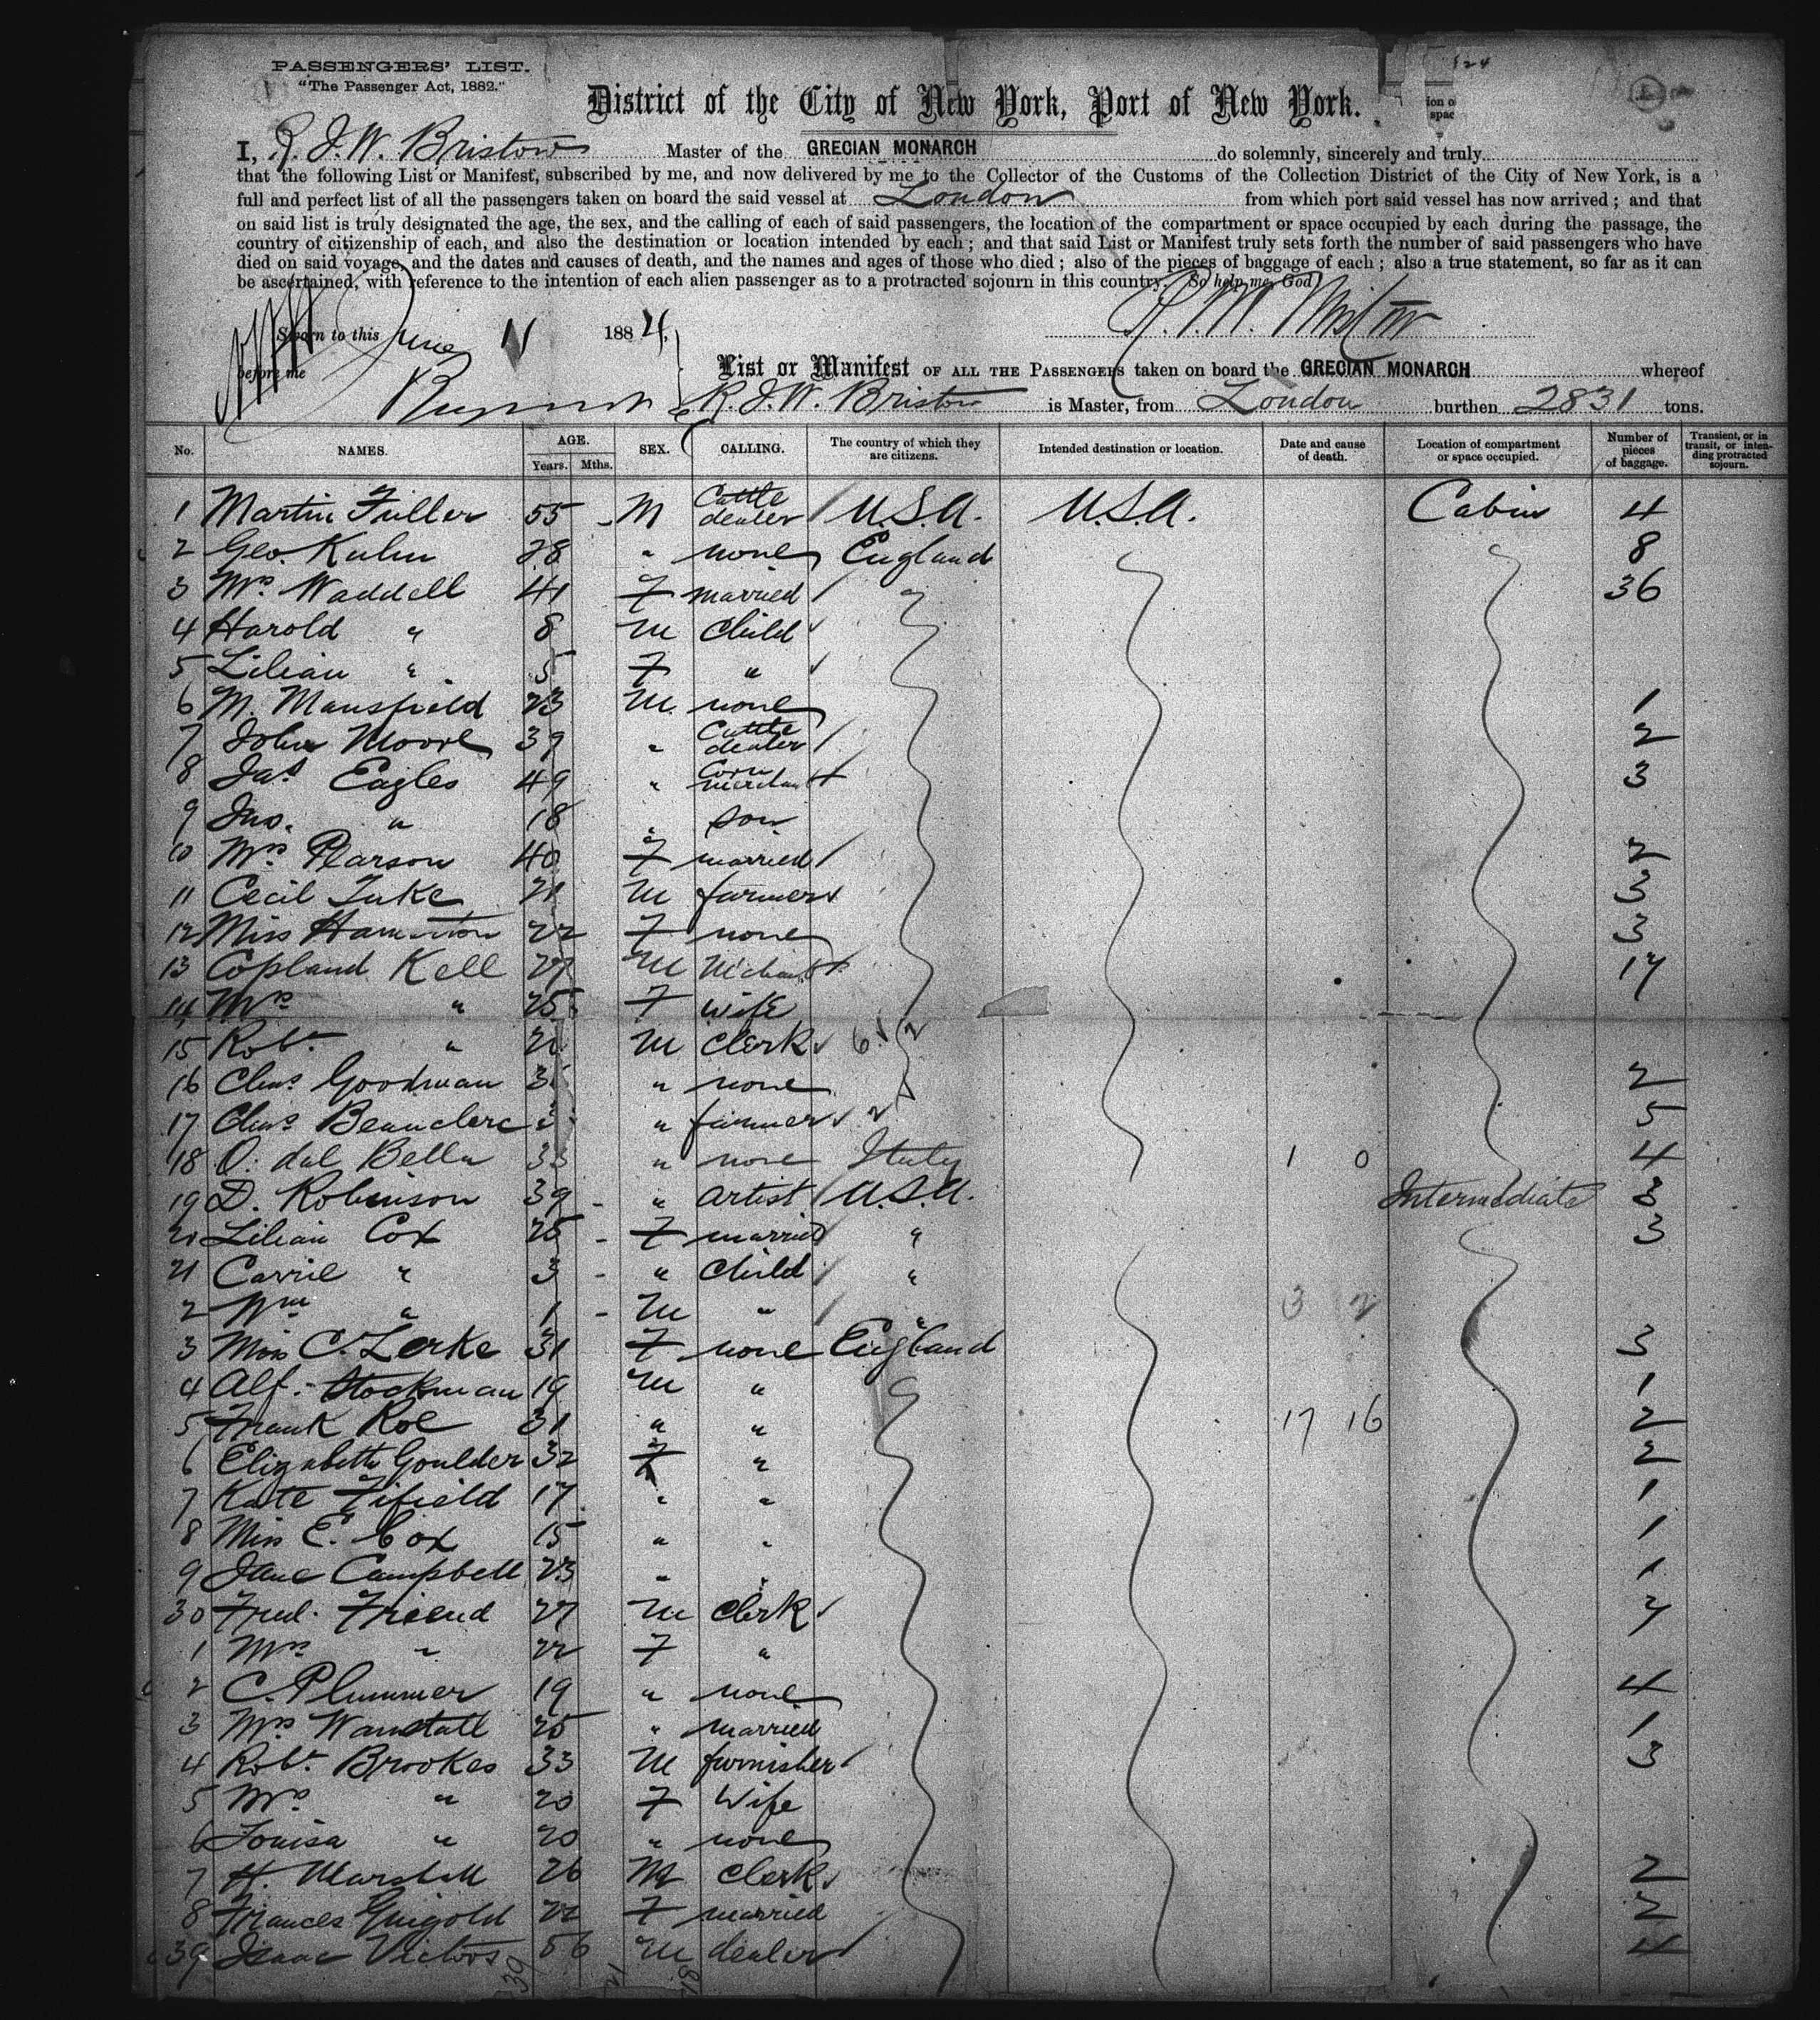 PASSENGERS' LIST.
"The Passenger Act, 1882."
District of the City of New York, Port of New York.
I, R. J. W. Bristow Master of the GRECIAN MONARCH do solemnly, sincerely and truly
that the following List or Manifest, subscribed by me, and now delivered by me to the Collector of the Customs of the Collection District of the City of New York, is a
full and perfect list of all the passengers taken on board the said vessel at London from which port said vessel has now arrived; and that
on said list is truly designated the age, the sex, and the calling of each of said passengers, the location of the compartment or space occupied by each during the passage, the
country of citizenship of each, and also the destination or location intended by each; and that said List or Manifest truly sets forth the number of said passengers who have
died on said voyage, and the dates and causes of death, and the names and ages of those who died; also of the pieces of baggage of each; also a true statement, so far as it can
be ascertained, with reference to the intention of each alien passenger as to a protracted sojourn in this country. So help me God
Sworn to this June 11 1884,
before me
List or Manifest OF ALL THE PASSENGERS taken on board the GRECIAN MONARCH whereof
R. J. W. Bristow is Master, from London burthen 2831 tons.
No. NAMES. AGE. Years. Mths. SEX. CALLING. The country of which they are citizens. Intended destination or location. Date and cause of death. Location of compartment or space occupied. Number of pieces of baggage. Transient, or in transit, or intending protracted sojourn.
1 Martin Fuller 55 M Cattle dealer U.S.A. U.S.A. Cabin 4
2 Geo. Kuhn 28 " none England 8
3 Mrs Waddell 41 F married 36
4 Harold " 8 M Child
5 Lilian " 5 F "
6 M. Mansfield 23 M none 1
7 John Moore 39 " Cattle dealer 2
8 Jas Eagles 49 " Corn merchant 3
9 Jno. " 18 " son
10 Mrs Pearson 40 F married 2
11 Cecil Tuke 21 M farmer 3
12 Miss Hamilton 22 F none 3
13 Copland Kell 27 M Mchant 17
14 Mrs " 25 F wife
15 Robt " M Clerk
16 Chas Goodman " none 2
17 Chas Beauclerc " farmer 5
18 O. dal Bella 33 " none Italy 1 0 4
19 D. Robinson 39 " artist U.S.A. Intermediate 3
20 Lilian Cox 25 F married " 3
21 Carrie " 3 " Child "
2 Wm " 1 M " " 3 2
3 Miss C. Lerke 31 F none England 3
4 Alf. Stockman 19 M " 1
5 Frank Roe 31 " " 17 16 2
6 Elizabeth Goulder 32 F " 2
7 Kate Fifield 17 " " 1
8 Miss E. Cox 15 " " 1
9 Jane Campbell 23 " " 1
30 Fred. Friend 27 M Clerk 7
1 Mrs " 22 F "
2 C. Plummer 19 " none 4
3 Mrs Wanstall 25 " married 1
4 Robt Brookes 33 M furnisher 3
5 Mrs " 20 F Wife
6 Louisa " 20 " none
7 H. Marshall 26 M Clerk 2
8 Frances Guigold 22 F married 2
39 Isaac Victors 56 M dealer 4